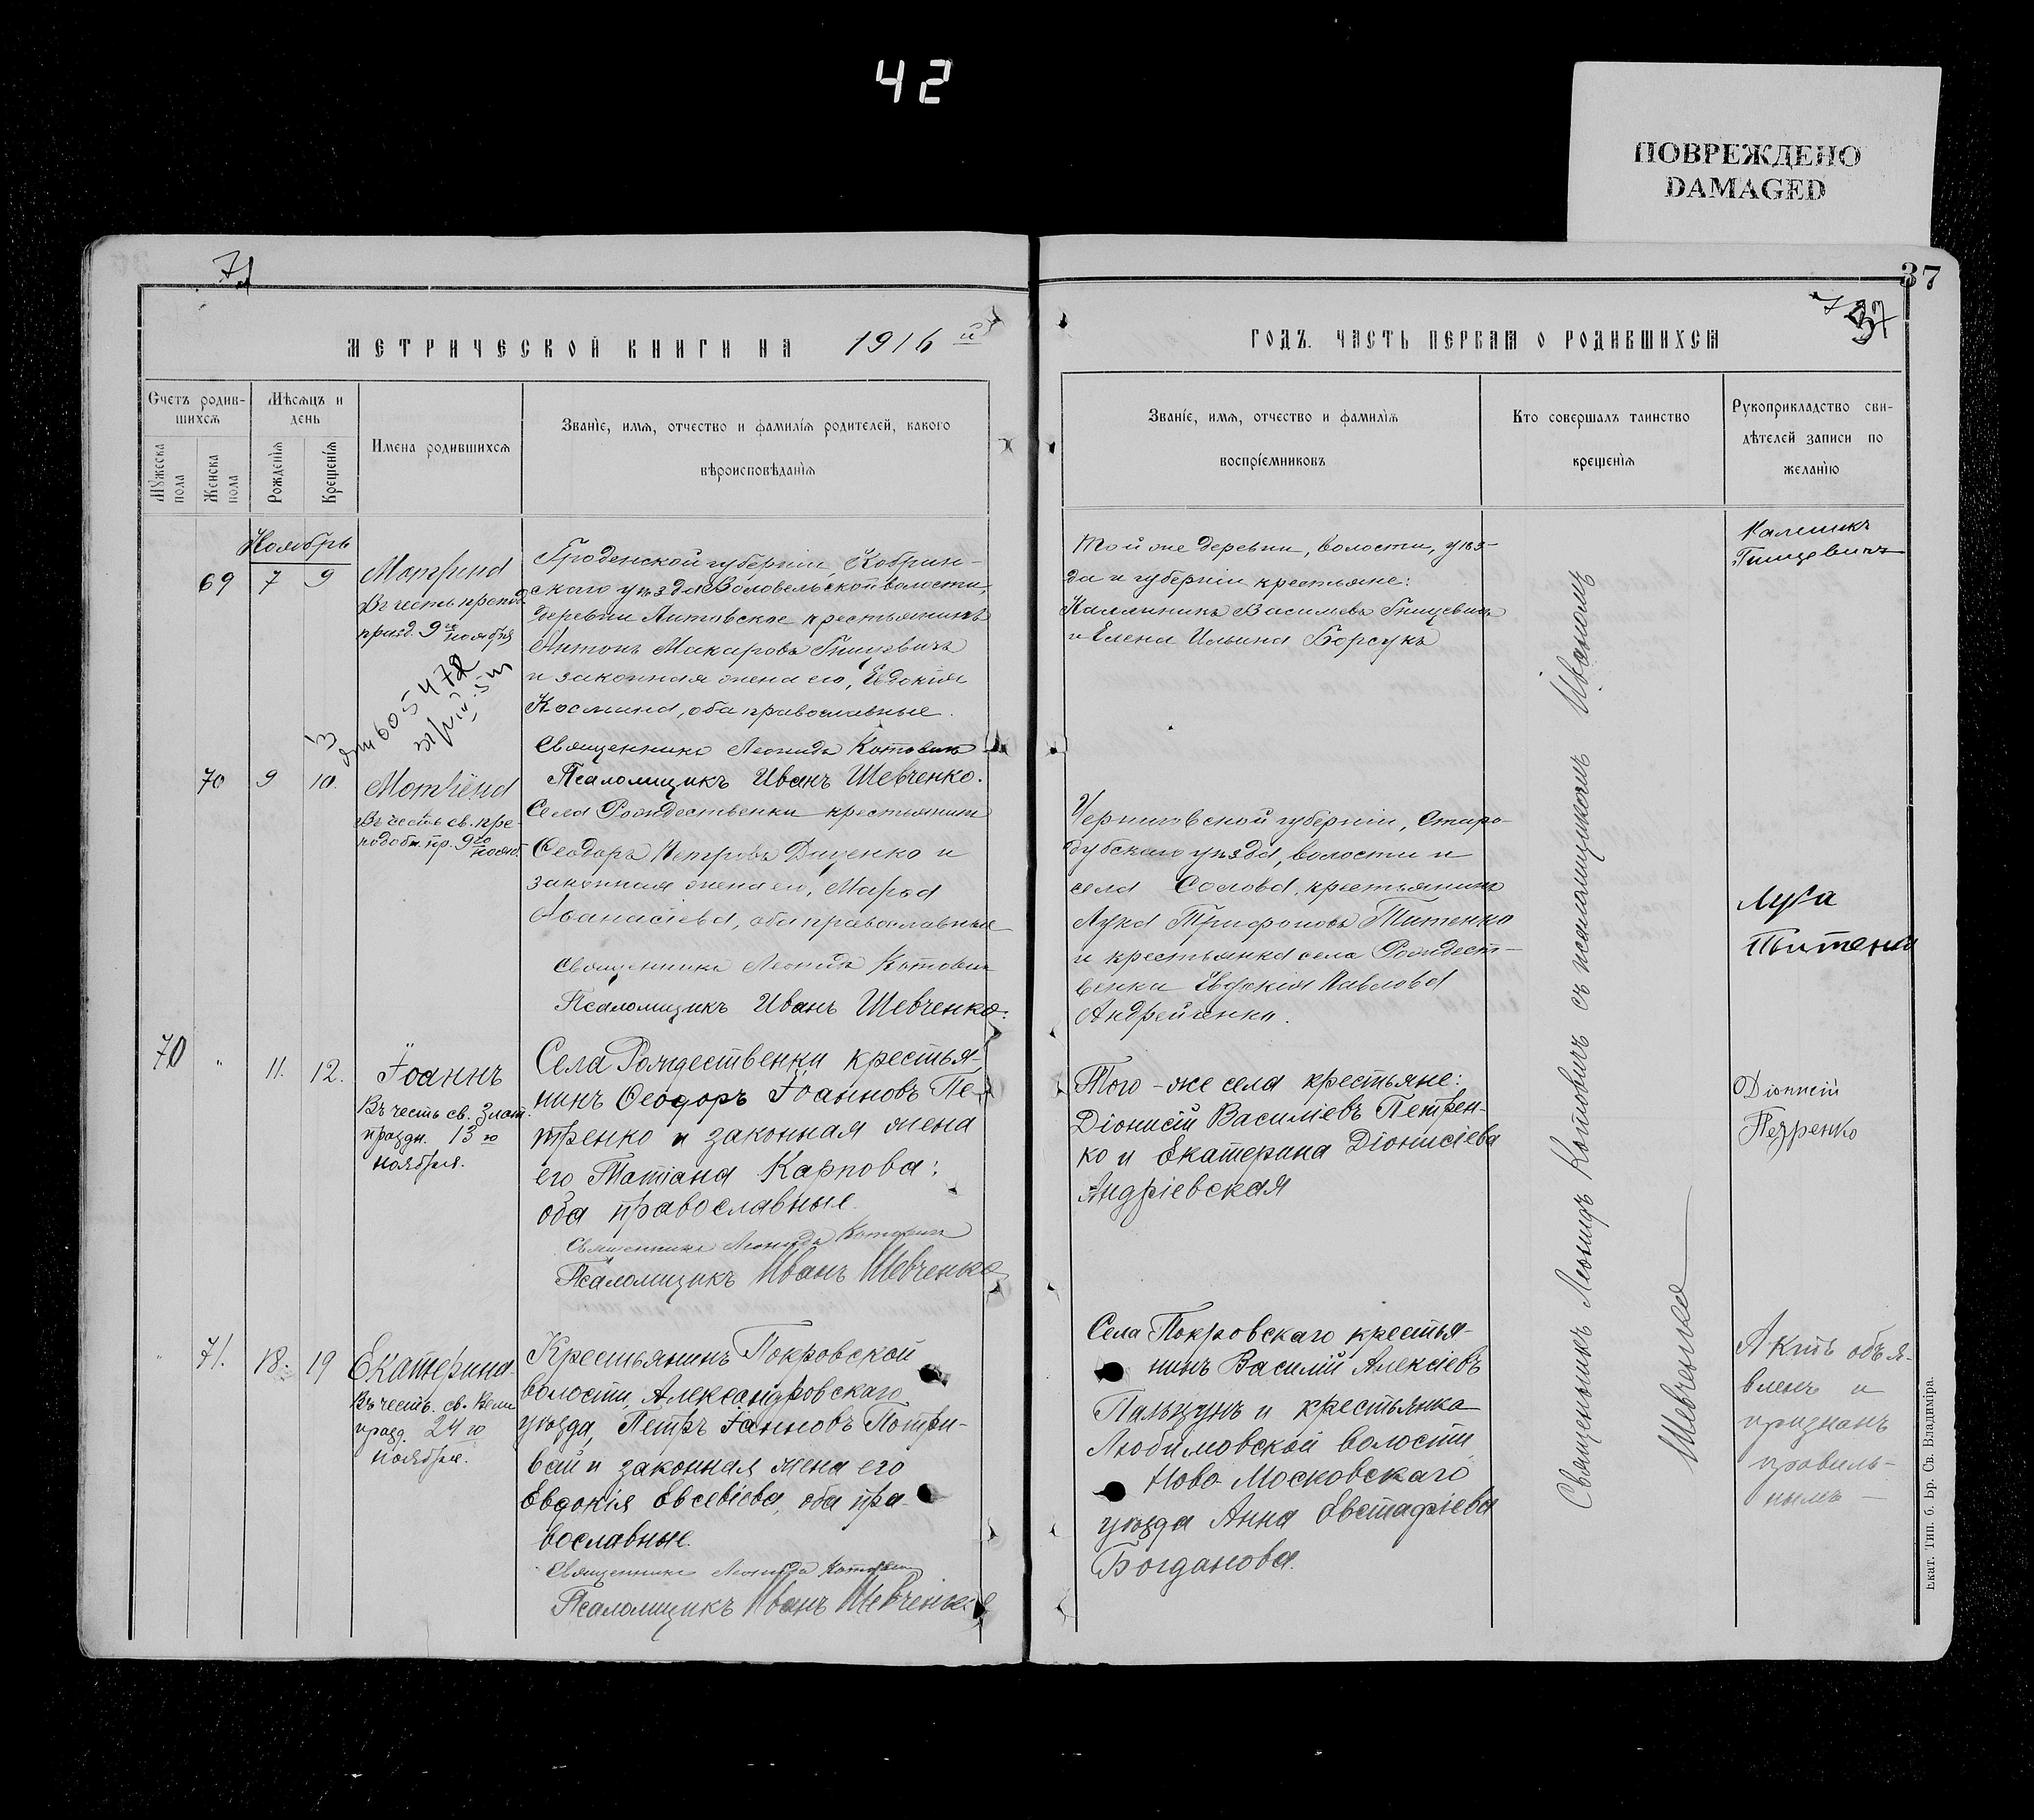 42
ПОВРЕЖДЕНО
DAMAGED
71
37
37
МЕТРИЧЕСКОЙ КНИГИ НА 1916 й
ГОДЪ. ЧАСТЬ ПЕРВАЯ О РОДИВШИХСЯ
Счетъ родив-
шихся
Мужеска
пола
Женска
пола
Мѣсяцъ и
день
Рожденія
Крещенія
Имена родившихся
Званіе, имя, отчество и фамилія родителей, какого
вѣроисповѣданія
Званіе, имя, отчество и фамилія
воспріемниковъ
Кто совершалъ таинство
крещенія
Рукоприкладство сви-
дѣтелей записи по
желанію
Ноябрь
69 7 9
Матрина
Въ честь препод.
празд. 9го ноября
Гроденской губерніи, Кобрин-
скаго уѣзда Воловельской волости,
деревни Литовское крестьянинъ
Антонъ Макаровъ Гницевичъ
и законная жена его, Евдокія
Космина, оба православные.
Священникъ Леонидъ Котовичъ
Псаломщикъ Иванъ Шевченко.
Той же деревни, волости, уѣз-
да и губерніи крестьяне:
Каллиникъ Васильевъ Гницевичъ
и Елена Ильина Борсукъ
Калиникъ
Гницевичъ
70 9 10.
Матрёна
Въ честь св. пре-
подобн. пр. 9го нояб.
Села Рождественки крестьянинъ
Ѳеодоръ Петровъ Диценко и
законная жена его, Марѳа
Аѳанасіева, оба православные
Священникъ Леонидъ Котовичъ
Псаломщикъ Иванъ Шевченко.
Черниговской губерніи, Старо-
дубскаго уѣзда, волости и
села Солова, крестьянинъ
Лука Трифоновъ Титенко
и крестьянка села Рождест-
венки Евдокія Павлова
Андрейченко.
Лука
Титенко
70 " 11. 12.
Іоаннъ
Въ честь св. Злат.
праздн. 13го
ноября.
Села Рождественки крестья-
нинъ Ѳеодоръ Іоанновъ Пе-
тренко и законная жена
его Татіана Карпова:
оба православные.
Священникъ Леонидъ Котовичъ
Псаломщикъ Иванъ Шевченко
Того-же села крестьяне:
Діонисій Василіевъ Петрен-
ко и Екатерина Діонисіева
Андріевская
Діонисій
Петренко
" 71. 18. 19
Екатерина
Въ честь св. Вели
празд. 24го
ноября.
Крестьянинъ Покровской
волости, Александровскаго
уѣзда, Петръ Іанновъ Потри-
вай и законная жена его
Евдокія Евсевіева, оба пра-
вославные.
Священникъ Леонидъ Котовичъ
Псаломщикъ Иванъ Шевченко
Села Покровскаго крестья-
нинъ Василій Алексіевъ
Пальцунъ и крестьянка
Любимовской волости
Ново Московскаго
уѣзда Анна Евстафіева
Богданова.
Актъ объя-
вленъ и
признанъ
правиль-
нымъ
Священникъ Леонидъ Котовичъ съ псаломщикомъ Иваномъ
Шевченко
Екат. Тип. б. Бр. Св. Владиміра.